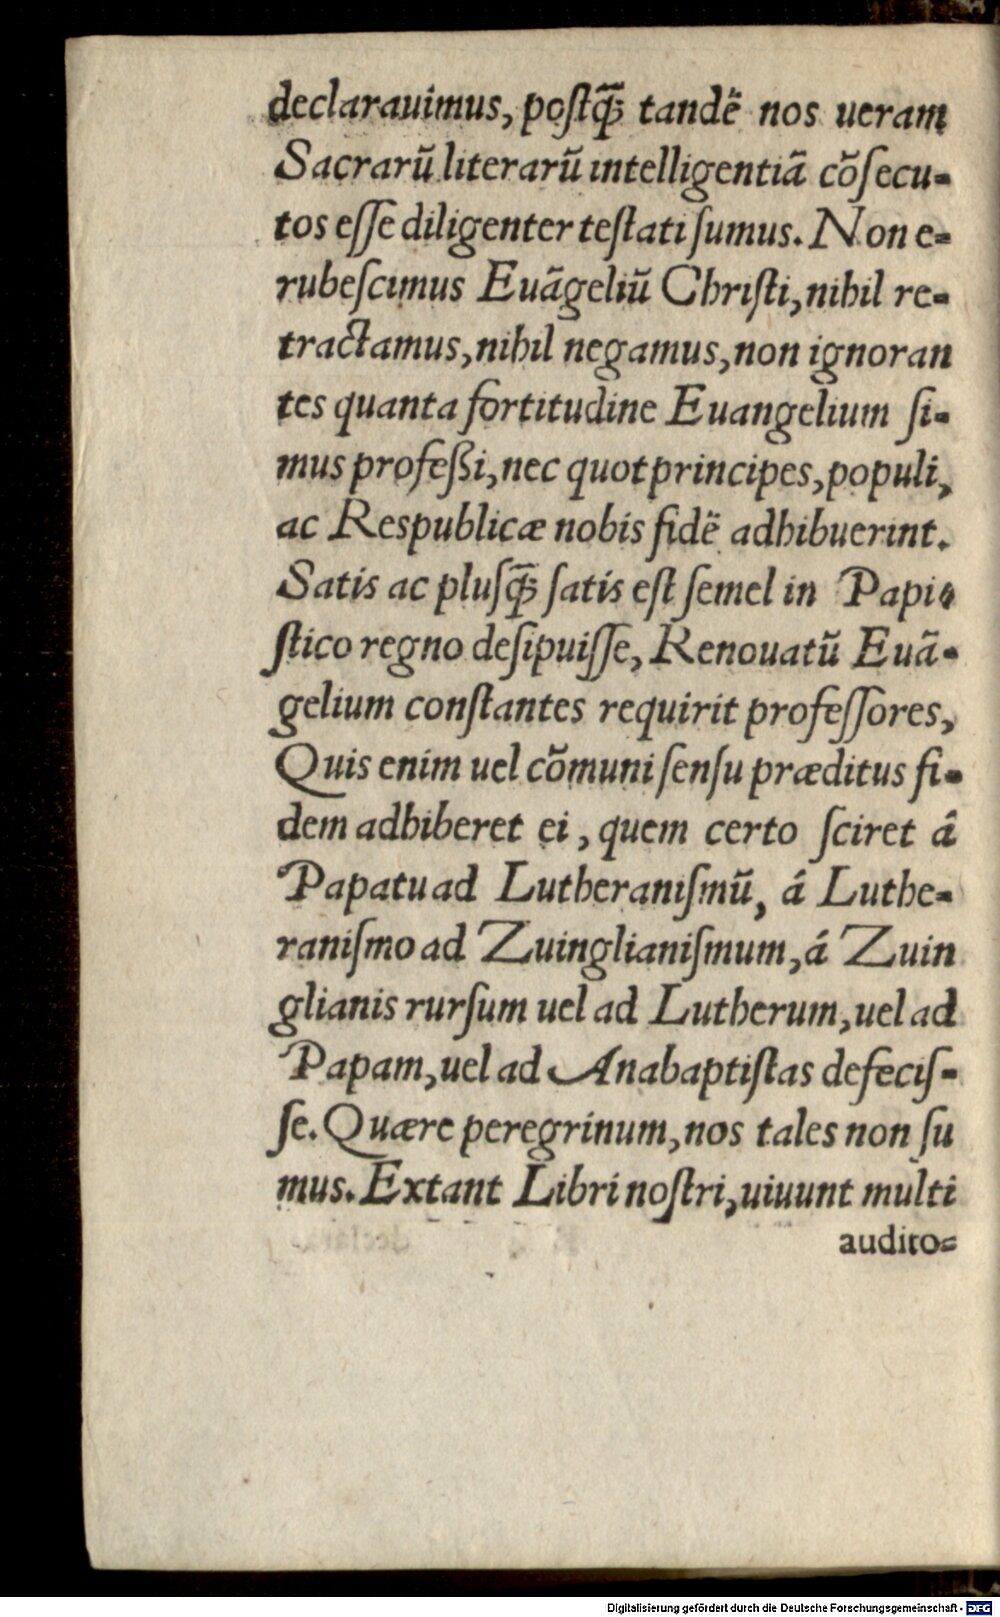 declarauimus, poſtq̃ʒ tandẽ nos ueram
Sacrarũ literarũ intelligentiã cõſecu-
tos eſſe diligenter teſtati ſumus. Non e-
rubeſcimus Euãgeliũ Chriſti, nihil re-
tractamus, nihil negamus, non ignoran
tes quanta fortitudine Euangelium ſi-
mus profeßi, nec quot principes, populi,
ac Respublicæ nobis fidẽ adhibuerint.
Satis ac pluſq̃ʒ ſatis eſt ſemel in Papi-
ſtico regno deſipuiſſe, Renouatũ Euã-
gelium conſtantes requirit profeſſores,
Quis enim uel cõmuni ſenſu præditus fi-
dem adhiberet ei, quem certo ſciret á
Papatu ad Lutheraniſmũ, á Luthe-
raniſmo ad Zuinglianiſmum, á Zuin
glianis rurſum uel ad Lutherum, uel ad
Papam, uel ad Anabaptiſtas defeciſ-
ſe. Quære peregrinum, nos tales non ſu
mus. Extant Libri noſtri, uiuunt multi
audito-
Digitalisierung gefördert durch die Deutsche Forschungsgemeinschaft - DFG